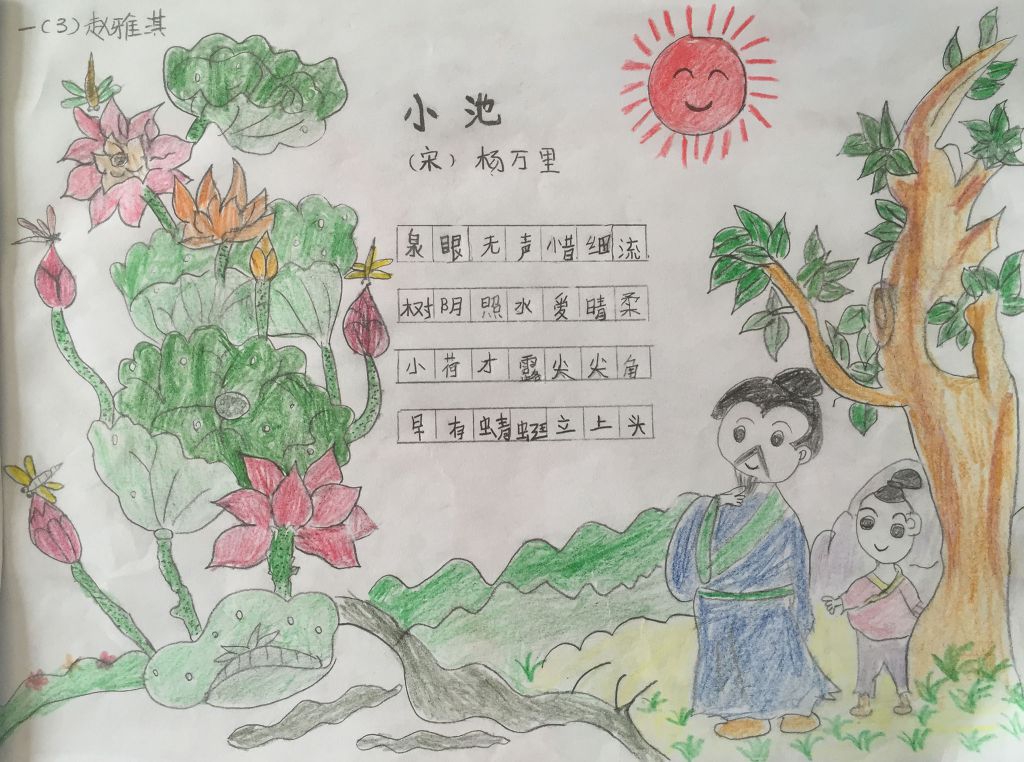 一(3)赵雅淇
小池
(宋)杨万里
泉眼无声惜细流
树阴照水爱晴柔
小荷才露尖尖角
早有蜻蜓立上头